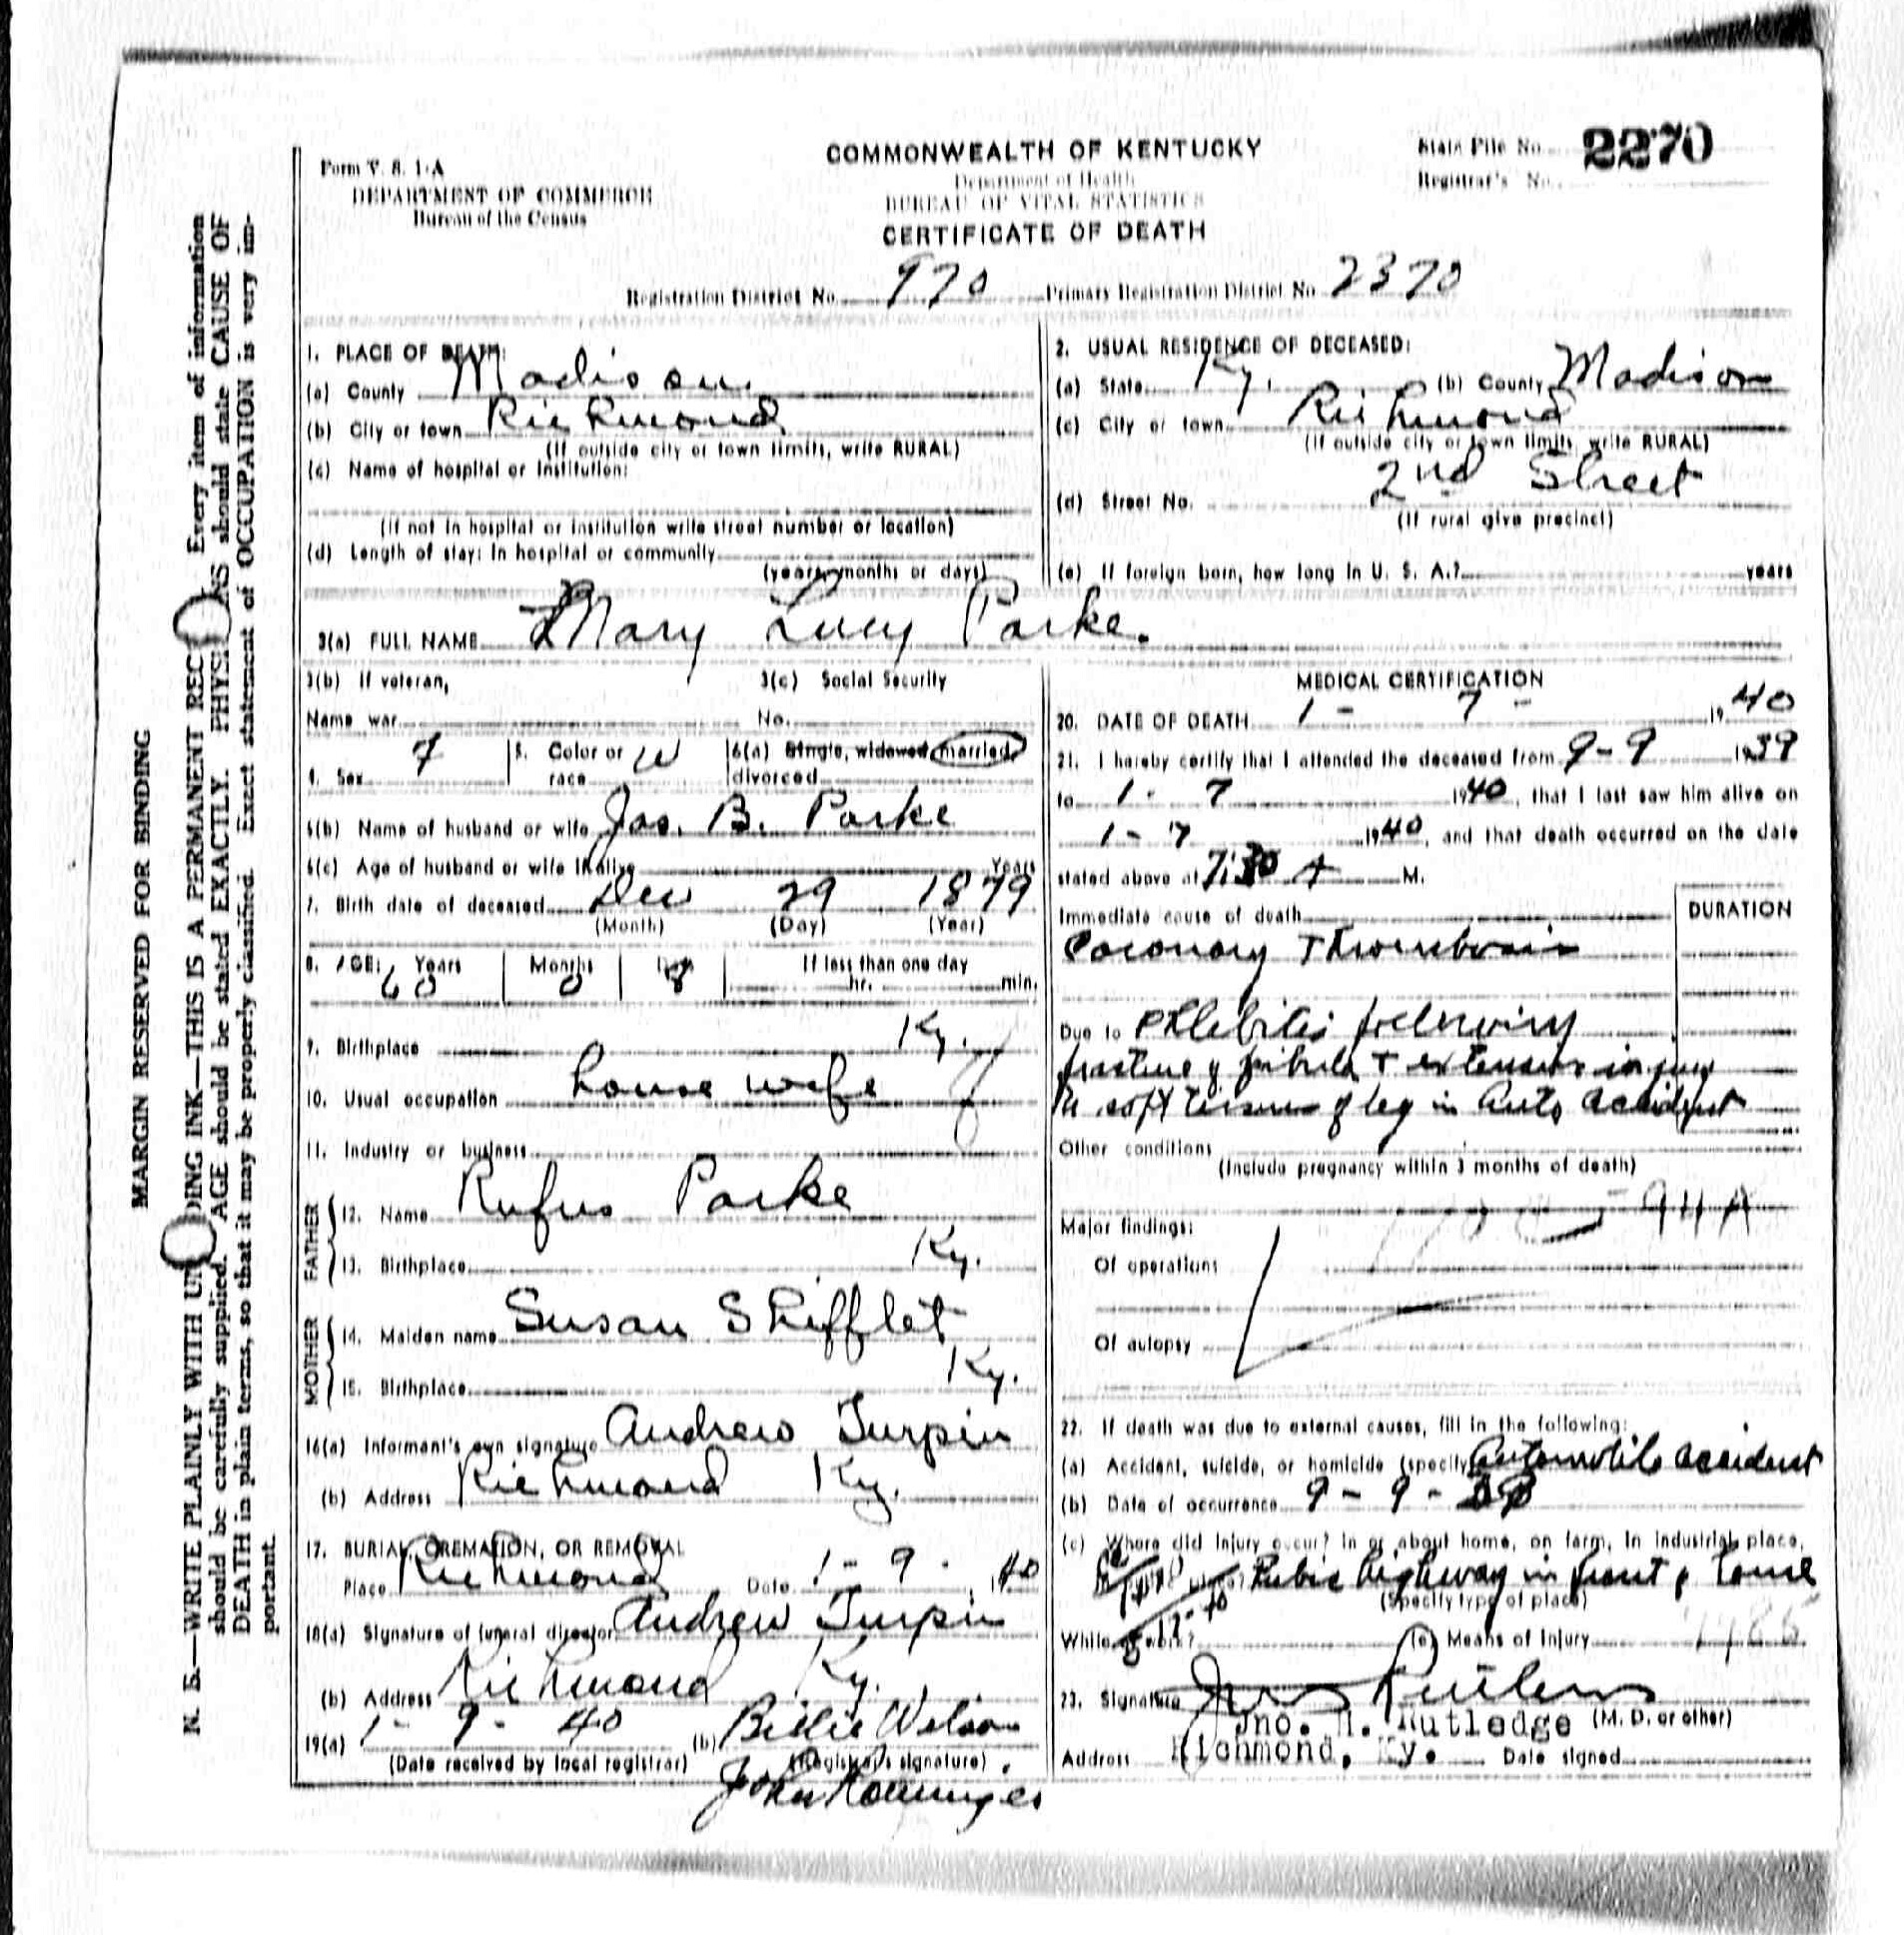 MARGIN RESERVED FOR BINDING
N. B.—WRITE PLAINLY WITH UN DING INK—THIS IS A PERMANENT REC Every item of information
should be carefully supplied. AGE should be stated EXACTLY. PHYSI NS should state CAUSE OF
DEATH in plain terms, so that it may be properly classified. Exact statement of OCCUPATION is very im-
portant.
Form V. S. 1-A
DEPARTMENT OF COMMERCE
Bureau of the Census
COMMONWEALTH OF KENTUCKY
Department of Health
BUREAU OF VITAL STATISTICS
CERTIFICATE OF DEATH
State File No. 2270
Registrar's No.
Registration District No. 970 Primary Registration District No. 2370
1. PLACE OF DEATH:
(a) County Madison
(b) City or town Richmond
(If outside city or town limits, write RURAL)
(c) Name of hospital or institution:
(If not in hospital or institution write street number or location)
(d) Length of stay: In hospital or community
(years, months or days)
2. USUAL RESIDENCE OF DECEASED:
(a) State Ky. (b) County Madison
(c) City or town Richmond
(If outside city or town limits, write RURAL)
(d) Street No. 2nd Street
(If rural give precinct)
(e) If foreign born, how long in U. S. A.? years
3(a) FULL NAME Mary Lucy Parke.
3(b) If veteran, 3(c) Social Security
Name war No.
4. Sex F 5. Color or race W 6(a) Single, widowed married
divorced
6(b) Name of husband or wife Jas. B. Parke
6(c) Age of husband or wife if alive Years
7. Birth date of deceased Dec 29 1879
(Month) (Day) (Year)
8. AGE: Years Months If less than one day
60 0 8 hr. min.
9. Birthplace Ky.
10. Usual occupation house wife
11. Industry or business
FATHER
12. Name Rufus Parke
13. Birthplace Ky.
MOTHER
14. Maiden name Susan Shifflet
15. Birthplace Ky.
16(a) Informant's own signature Andrew Turpin
(b) Address Richmond Ky.
17. BURIAL, CREMATION, OR REMOVAL
Place Richmond Date 1-9-, 1940
18(a) Signature of funeral director Andrew Turpin
(b) Address Richmond Ky.
19(a) 1-9-40 (b) Billie Wilson
(Date received by local registrar) (Registrar's signature)
MEDICAL CERTIFICATION
20. DATE OF DEATH 1-7- 1940
21. I hereby certify that I attended the deceased from 9-9 1939
to 1-7 1940, that I last saw him alive on
1-7 1940, and that death occurred on the date
stated above at 7:30 A M.
Immediate cause of death DURATION
Coronary Thrombosis
Due to Phlebitis following
fracture of fibula + extensive injury
to soft tissues of leg in Auto accident
Other conditions
(Include pregnancy within 3 months of death)
94A
Major findings:
Of operations
Of autopsy
22. If death was due to external causes, fill in the following:
(a) Accident, suicide, or homicide (specify) Automobile accident
(b) Date of occurrence 9-9-39
(c) Where did injury occur? In or about home, on farm, in industrial place,
Public highway in front of house
(Specify type of place)
While at work? (e) Means of Injury
23. Signature
Jno. M. Rutledge (M. D. or other)
Address Richmond, Ky. Date signed